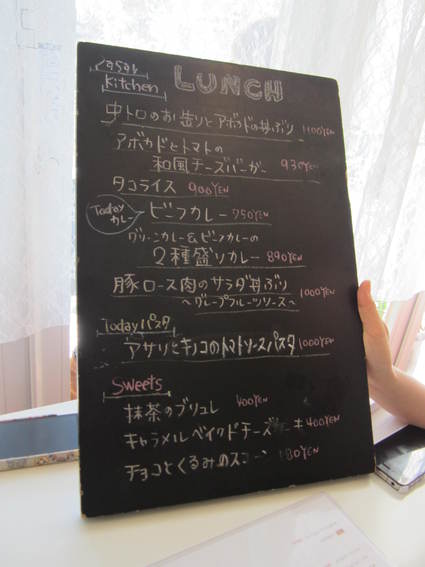 くすくす
Kitchen LUNCH
中トロのお造りとアボカドの丼ぶり 1100YEN
アボカドとトマトの
和風チーズバーガー 930YEN
タコライス 900YEN
Today カレー ビーフカレー 750YEN
グリーンカレー&ビーフカレーの
2種盛りカレー 890YEN
豚ロース肉のサラダ丼ぶり 1000YEN
〜グレープフルーツソース〜
Todayパスタ
アサリとキノコのトマトソースパスタ 1000YEN
Sweets
抹茶のブリュレ 400YEN
キャラメルベイクドチーズ 400YEN
チョコとくるみのスコーン 180YEN